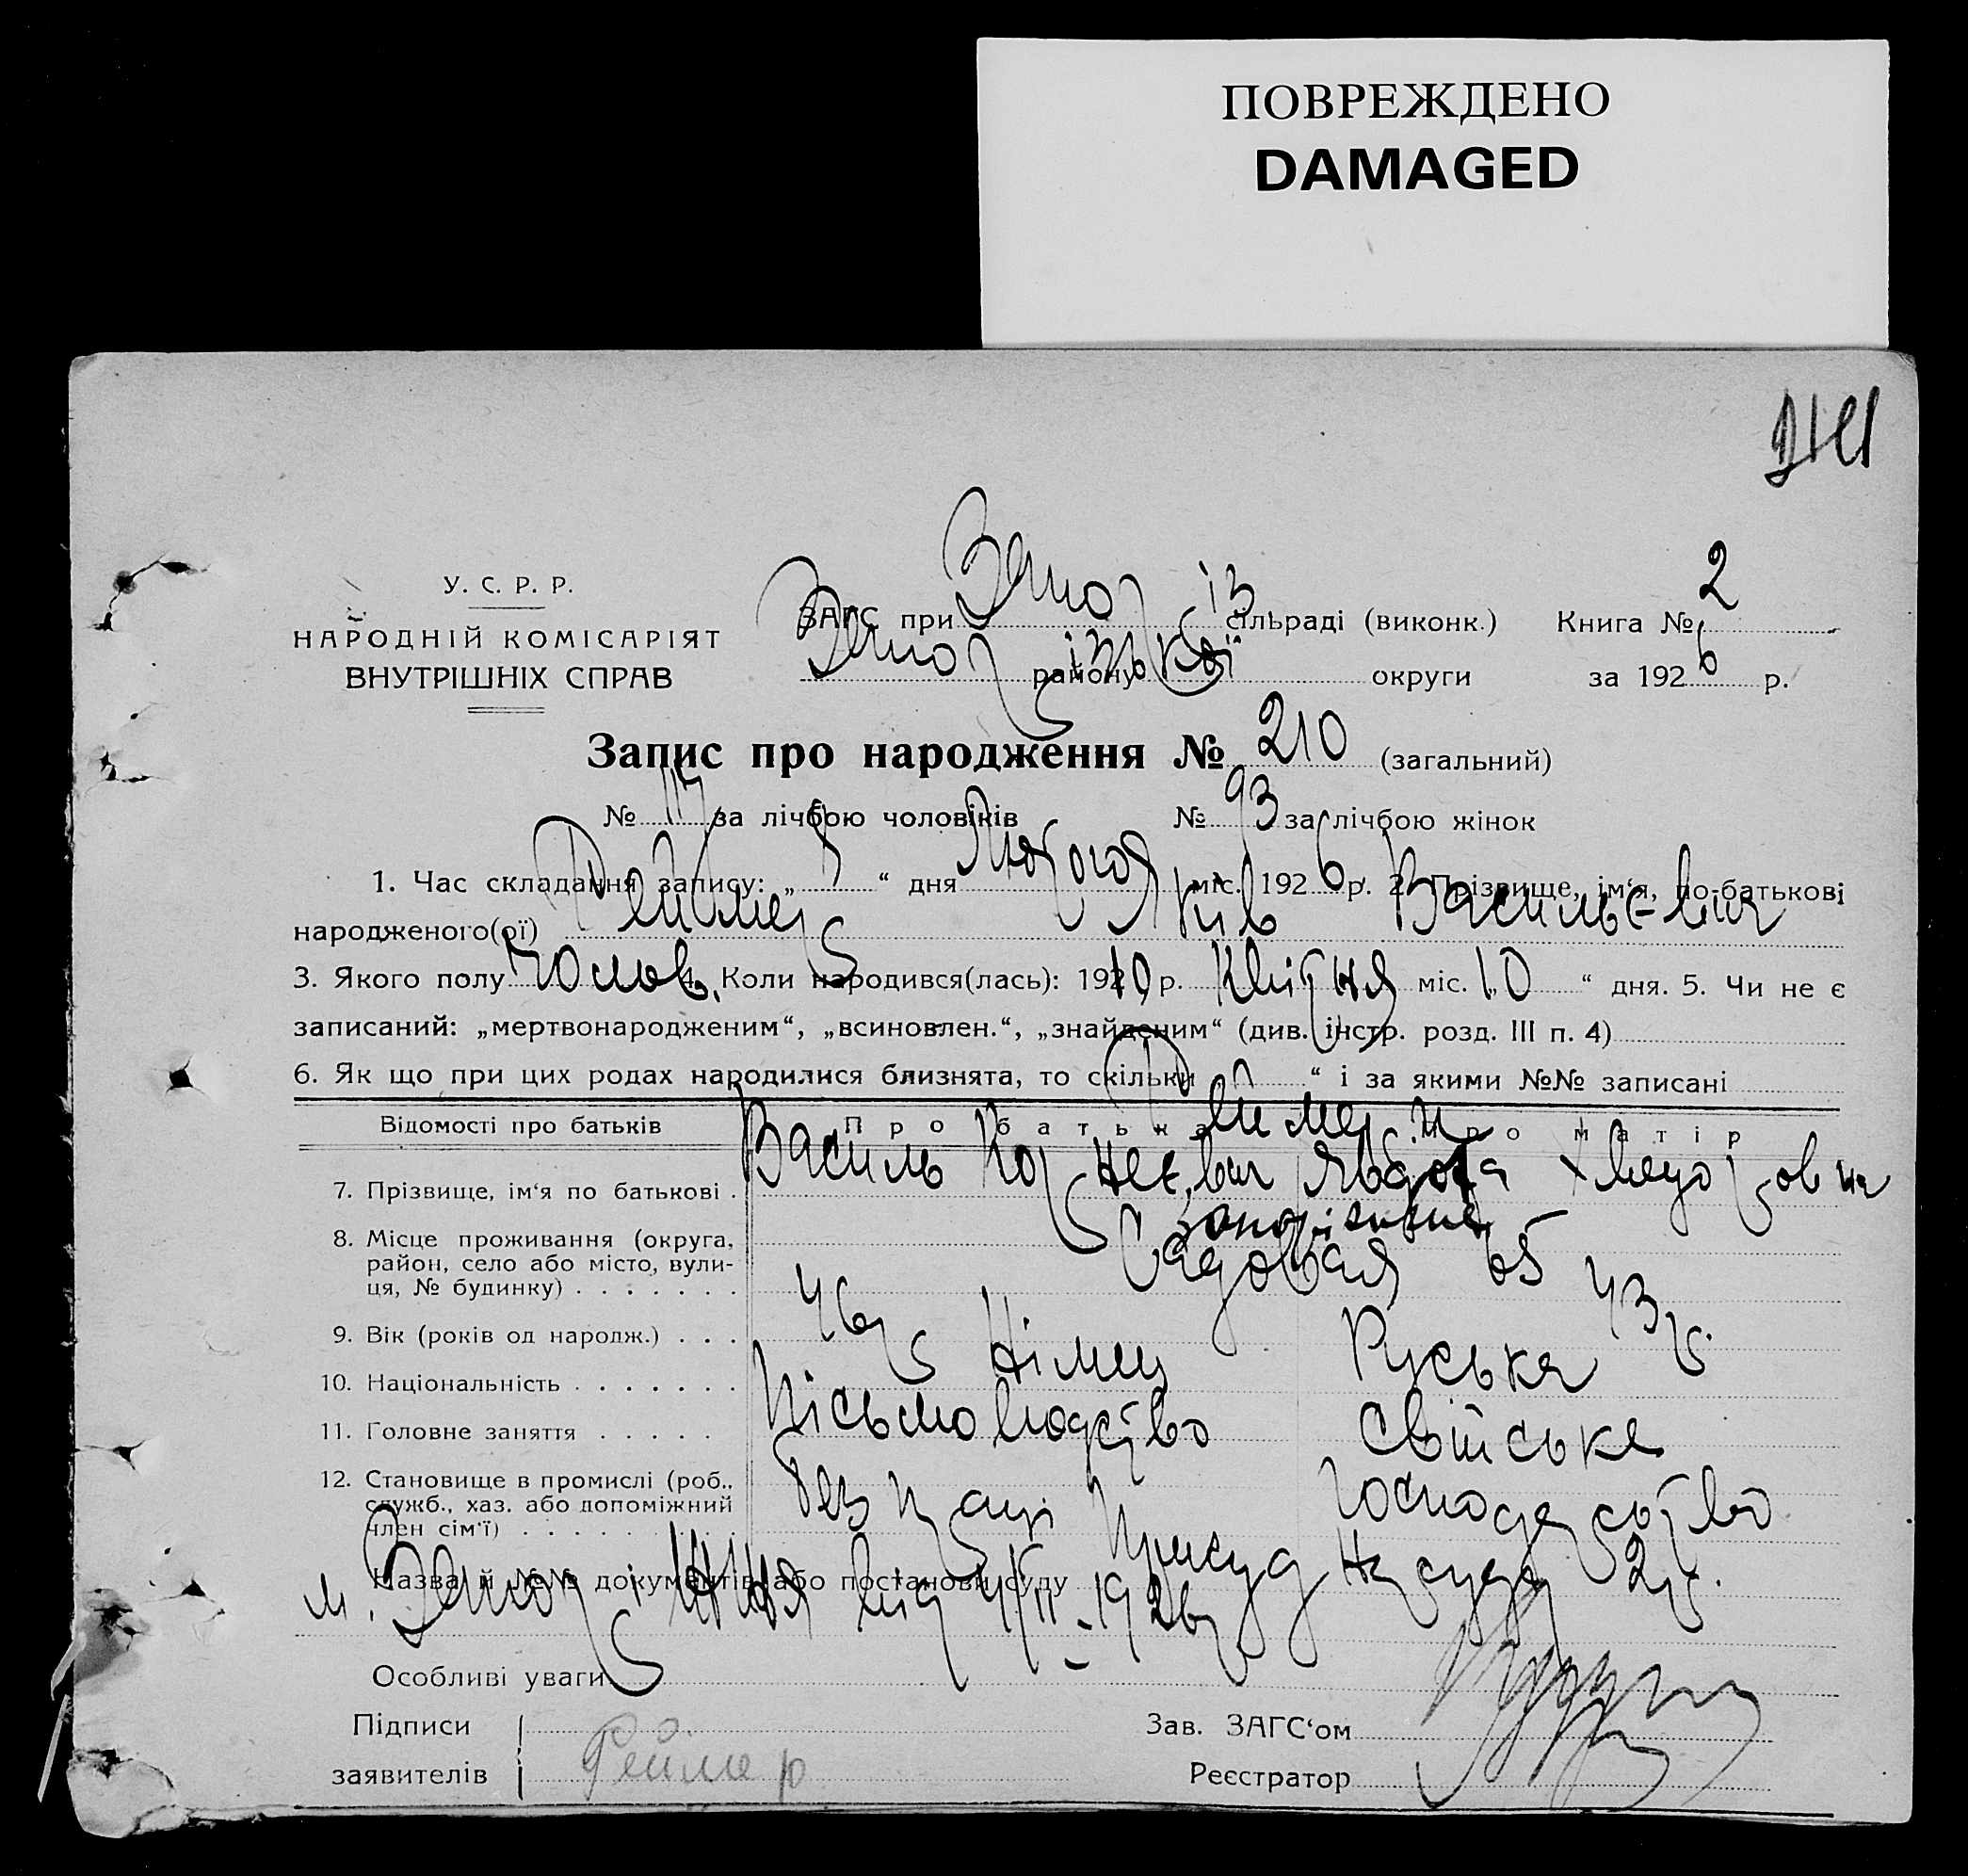 ПОВРЕЖДЕНО
DAMAGED
У. С. Р. Р.
НАРОДНІЙ КОМІСАРІЯТ
ВНУТРІШНІХ СПРАВ
ЗАГС при Запоріз сільраді (виконк.) Книга № 2
Запорізької району округи за 1926 р.
Запис про народження № 210 (загальний)
№ 117 за лічбою чоловіків № 93 за лічбою жінок
1. Час складання запису: „5“ дня Лютого міс. 1926 р. 2. Прізвище, ім‘я, по-батькові
народженого(ої) Реймер Яків Васильєвич
3. Якого полу Чолов. 4. Коли народився(лась): 1920 р. Квітня міс. „10“ дня. 5. Чи не є
записаний: „мертвонародженим“, „всиновлен.“, „знайденим“ (див. інстр. розд. III п. 4)
6. Як що при цих родах народилися близнята, то скільки “ і за якими №№ записані
Відомості про батьків Про батька Про матір
7. Прізвище, ім‘я по батькові . Реймери Василь Корнеєвич Явдоха
8. Місце проживання (округа, район, село або місто, вулиця, № будинку) . . . . . . . Запоріжжя Садовая 65
9. Вік (років од народж.) . . . 46р 43р.
10. Національність . . . . . . . Німец Руська
11. Головне заняття . . . . . Пісьмоводство Свійське
12. Становище в промислі (роб., служб., хаз. або допоміжний член сім‘ї) . . . . . . . . . . без праці господарство
Назва й №№ документів або постанови суду Присуд Нарсуду 2р.
м. Запоріжжя від 4/II-1926р
Особливі уваги
Підписи
заявителів Реймер
Зав. ЗАГС‘ом
Реєстратор